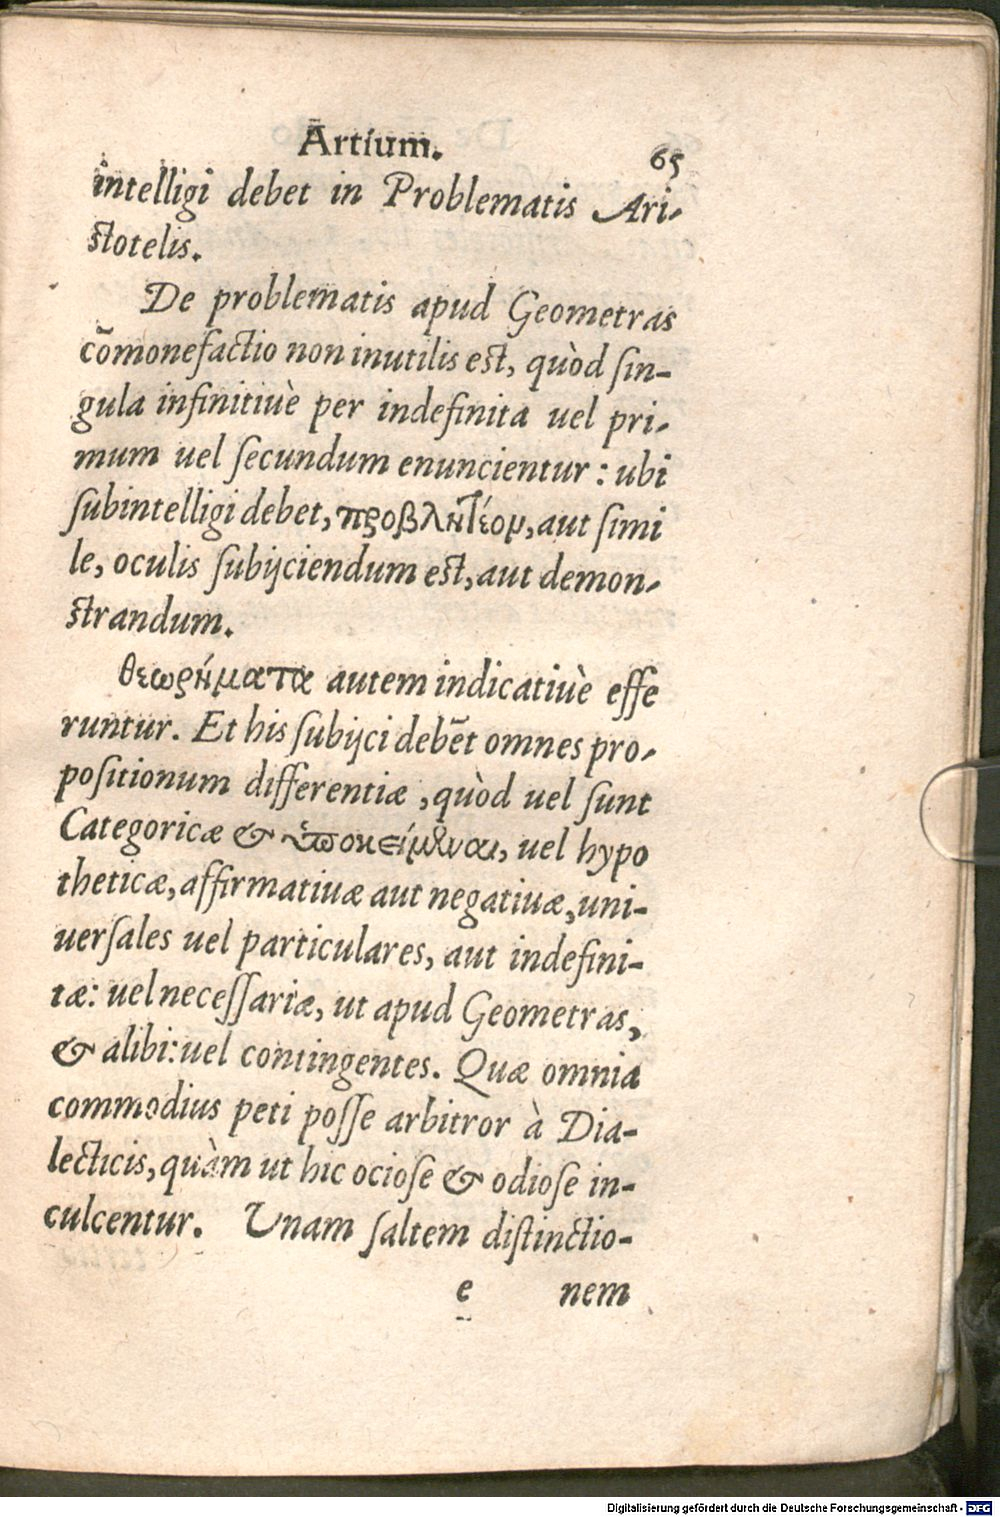 Artium. 65
intelligi debet in Problematis Ari-
ſtotelis.
De problematis apud Geometras
cõmonefactio non inutilis est, quòd ſin-
gula infinitiuè per indefinita uel pri-
mum uel ſecundum enuncientur: ubi
ſubintelligi debet, προβλητέον, aut ſimi
le, oculis ſubijciendum est, aut demon-
ſtrandum.
θεωρήματα autem indicatiuè effe
runtur. Et his ſubijci debēt omnes pro-
poſitionum differentiæ, quòd uel ſunt
Categoricæ & ὑποκείμεναι, uel hypo
theticæ, affirmatiuæ aut negatiuæ, uni-
uerſales uel particulares, aut indefini-
tæ: uel neceſſariæ, ut apud Geometras,
& alibi: uel contingentes. Quæ omnia
commodius peti poſſe arbitror à Dia-
lecticis, quàm ut hic ocioſe & odioſe in-
culcentur. Vnam ſaltem diſtinctio-
e nem
Digitalisierung gefördert durch die Deutsche Forschungsgemeinschaft - DFG